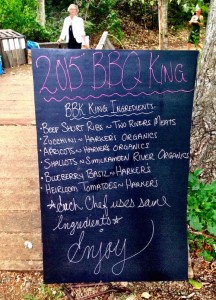 2015 BBQ King
BBK King Ingredients
• Beef Short Ribs ~ Two Rivers Meats
• Zucchini ~ Harker's Organics
• Apricots ~ Harker's Organics
• Shallots ~ Similkameen River Organics
• Blueberry Basil ~ Harker's
• Heirloom Tomatoes ~ Harkers
* Each Chef uses same
Ingredients *
Enjoy